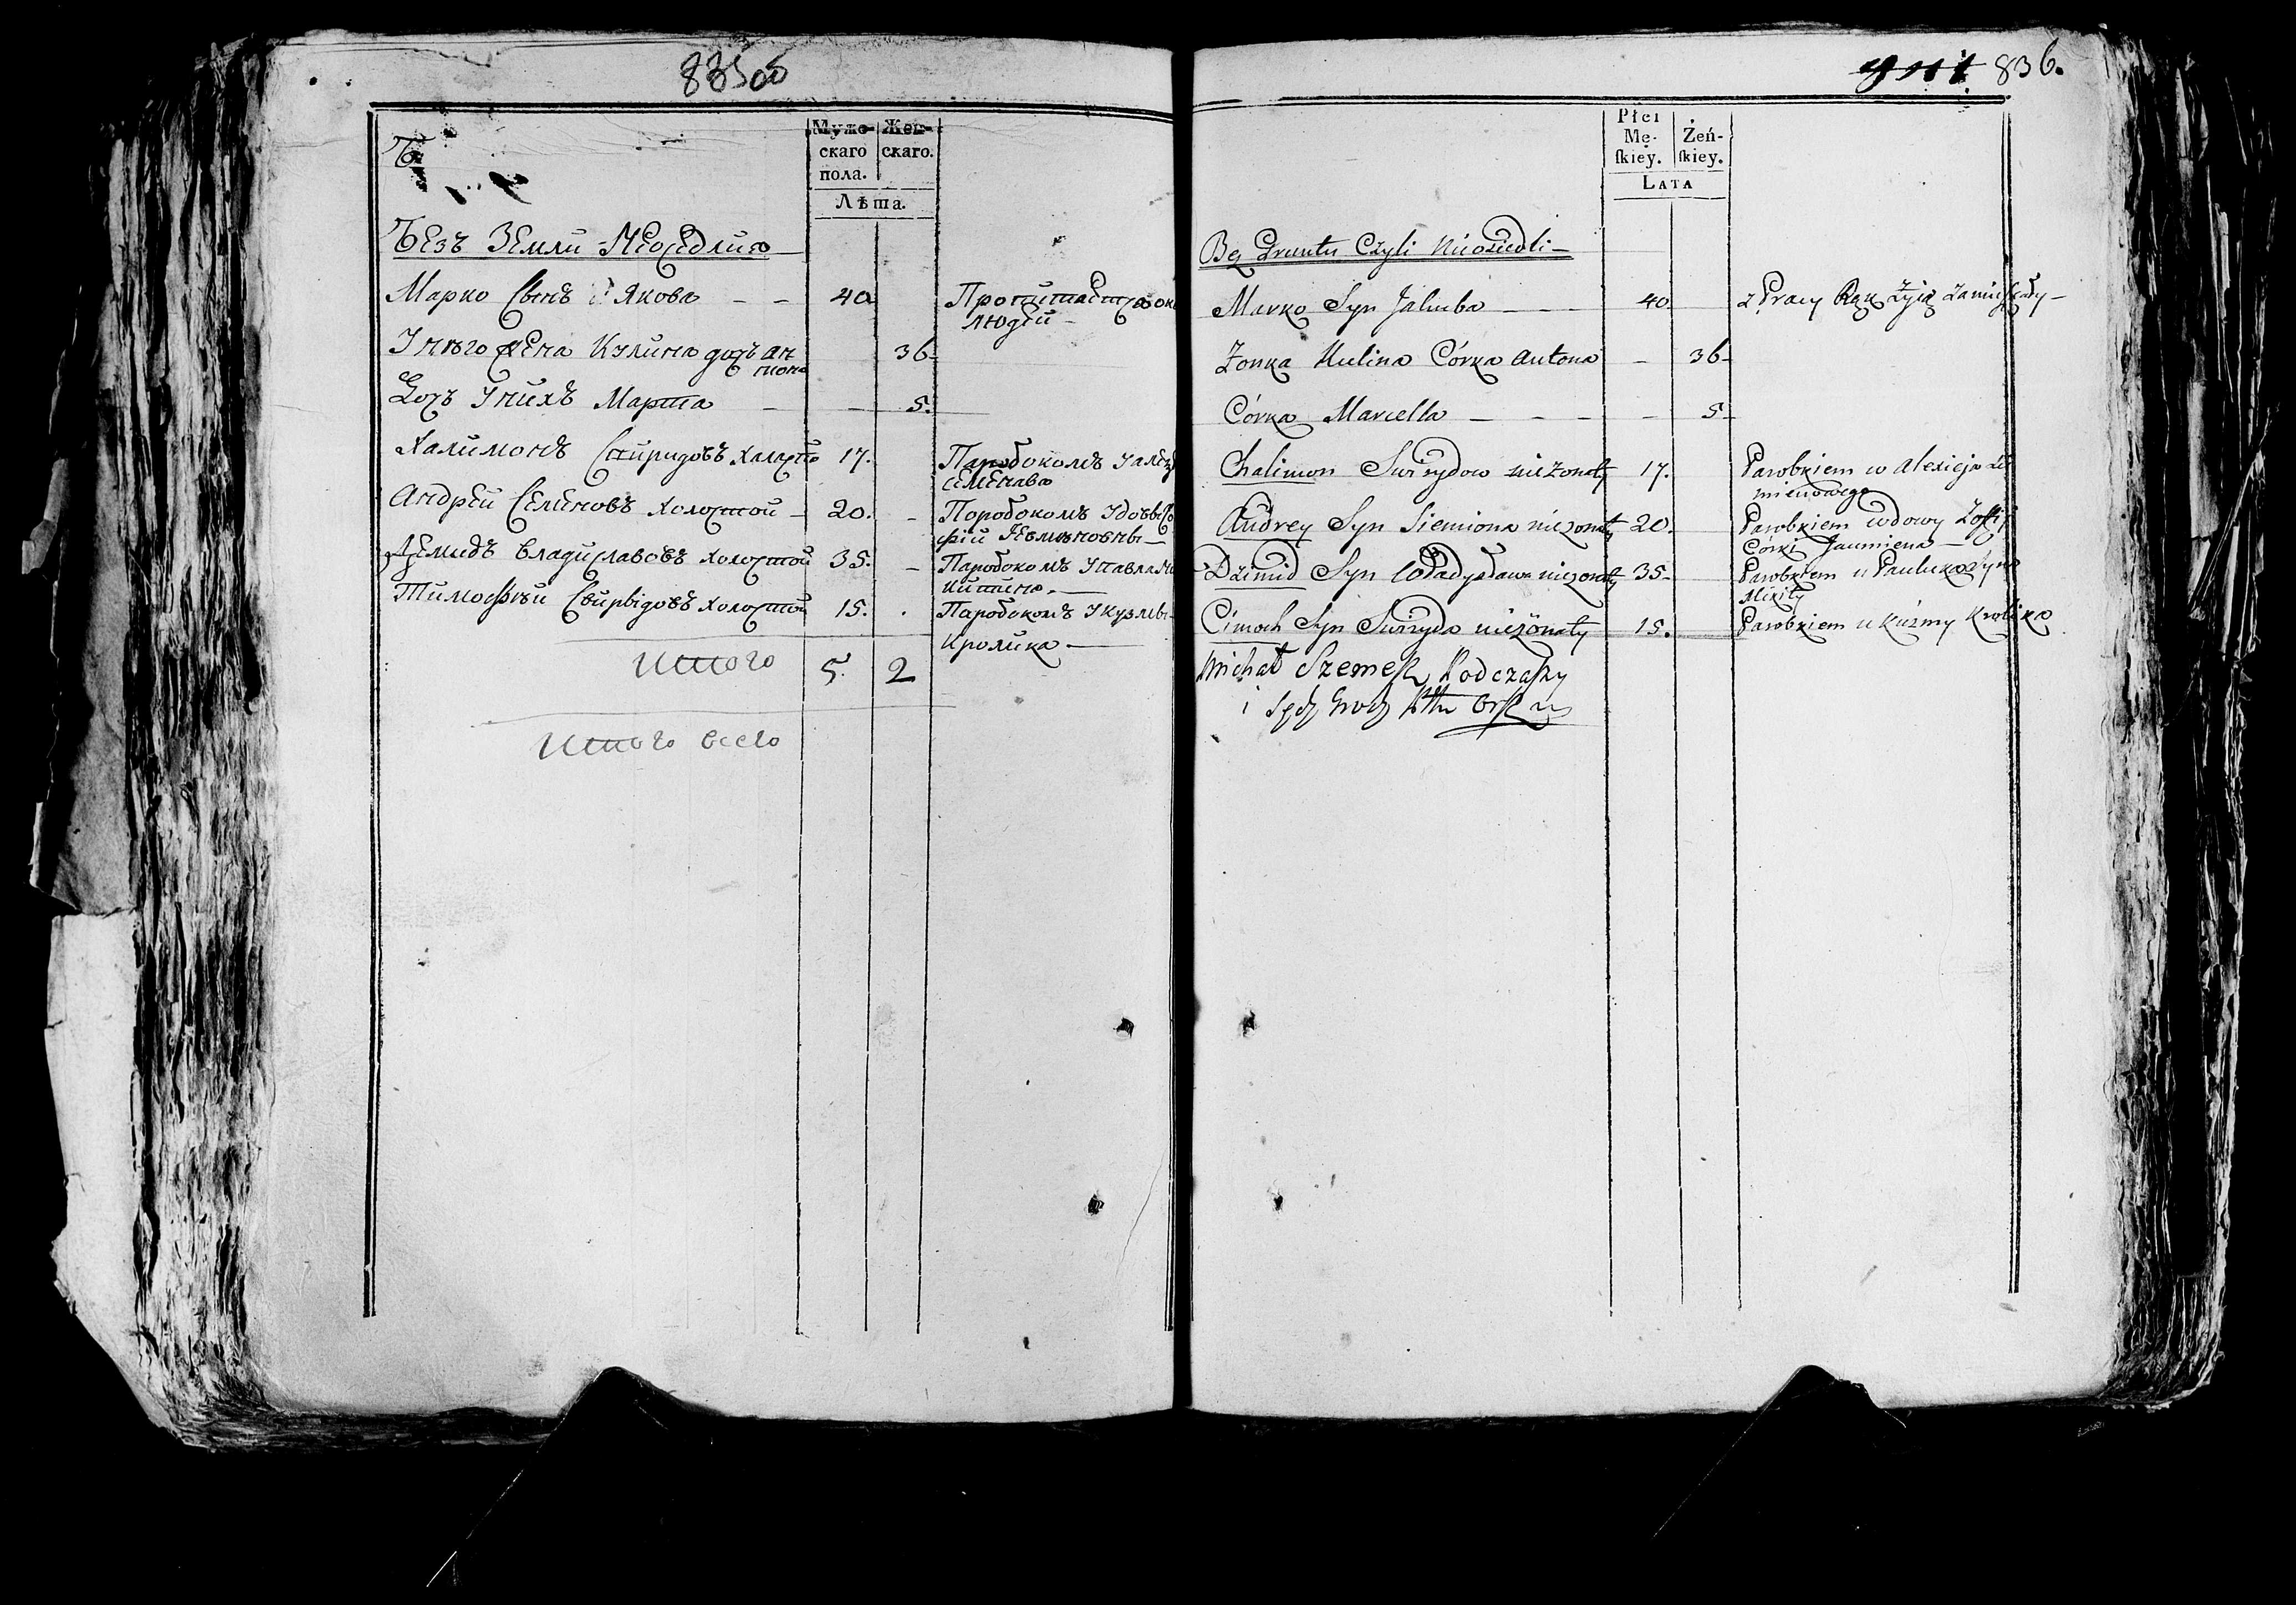 835об
Муже- Жен-
скаго скаго.
пола.
Лѣта.
Безъ Земли Неоседлия
Марко Сынъ Якова - - 40
людей -
Унего жена Кулина дочъ Ан
тона 36
Дочъ Унихъ Марта - - 5.
Халимонъ Свиридовъ Халасто 17. Паробокомъ У Алекъ
Семенава
Андрей Семеновъ Холостой - 20. - Поробокомъ Удовы Зо
фiи
Демидъ Владиславовъ Холостой 35. - Паробокомъ У Павла Ни
китина. -
Тимофѣй Свирыдовъ Холостой 15. . Паробокомъ У кузмы
Кролика -
Итого 5. 2
Итого всего
836.
Płci
Mę- Żeń-
ſkiey. ſkiey.
LATA
Bez Gruntu Czyli Nieosiedli -
Marko Syn Jakuba - - - 40. z Pracy Rąk Żyią
Zonka Kulina Córka Antona - 36 -
Córka Marcella - - - - 5 -
Chalimon Swirydow nieżonaty 17. Parobkiem w Alexieja Sie
mienowego
Andrey Syn Siemiona nieżonaty 20. Parobkiem wdowy Zofii
Córki Jaumiena -
Dzimid Syn Władysława nieżonaty 35 - Parobkiem u Pauluka Syna
Mikity
Cimoch Syn Swiryda nieżonaty 15. Parobkiem u Kuźmy Krolika
Michał Szemesz Podczaszy
i Sędz Grodz Pttu Orsz